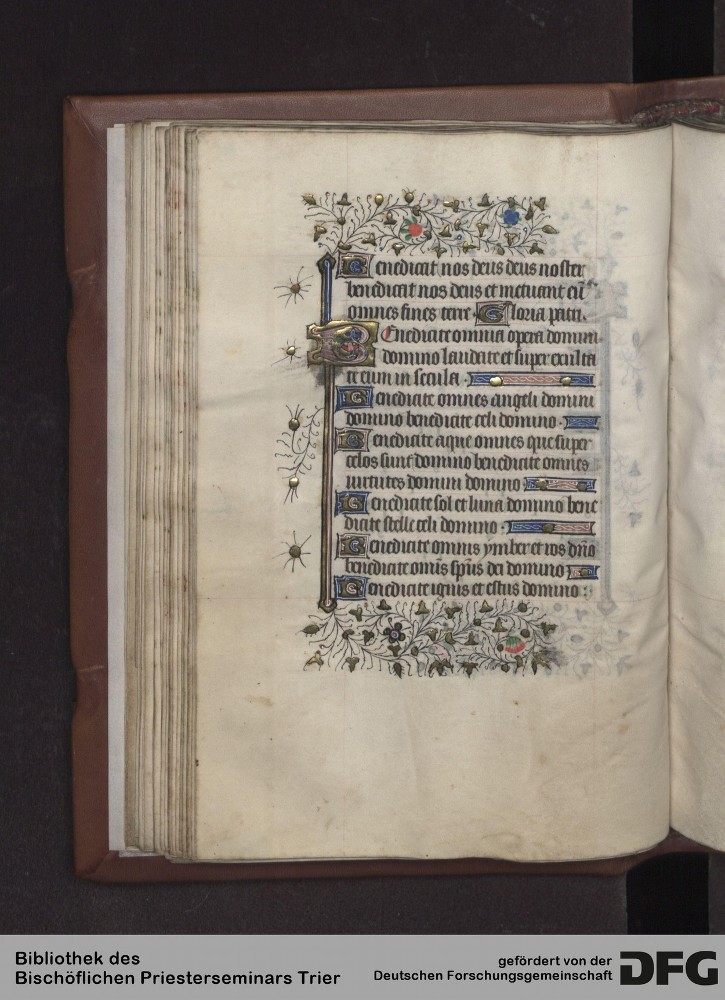 Benedicat nos deus deus noster
benedicat nos deus et metuant eū
omnes fines terre. Gloria patri.
Benedicite omnia opera domini
domino laudate et super exulta
te eum in secula.
Benedicite omnes angeli domini
domino benedicite celi domino.
Benedicite aque omnes que super
celos sunt domino benedicite omnes
uirtutes domini domino
Benedicite sol et luna domino bene
dicite stelle celi domino.
Benedicite omnis ymber et ros dño
benedicite omīs spūs dei domino
Benedicite ignis et estus domino:
Bibliothek des
Bischöflichen Priesterseminars Trier
gefördert von der
Deutschen Forschungsgemeinschaft
DFG